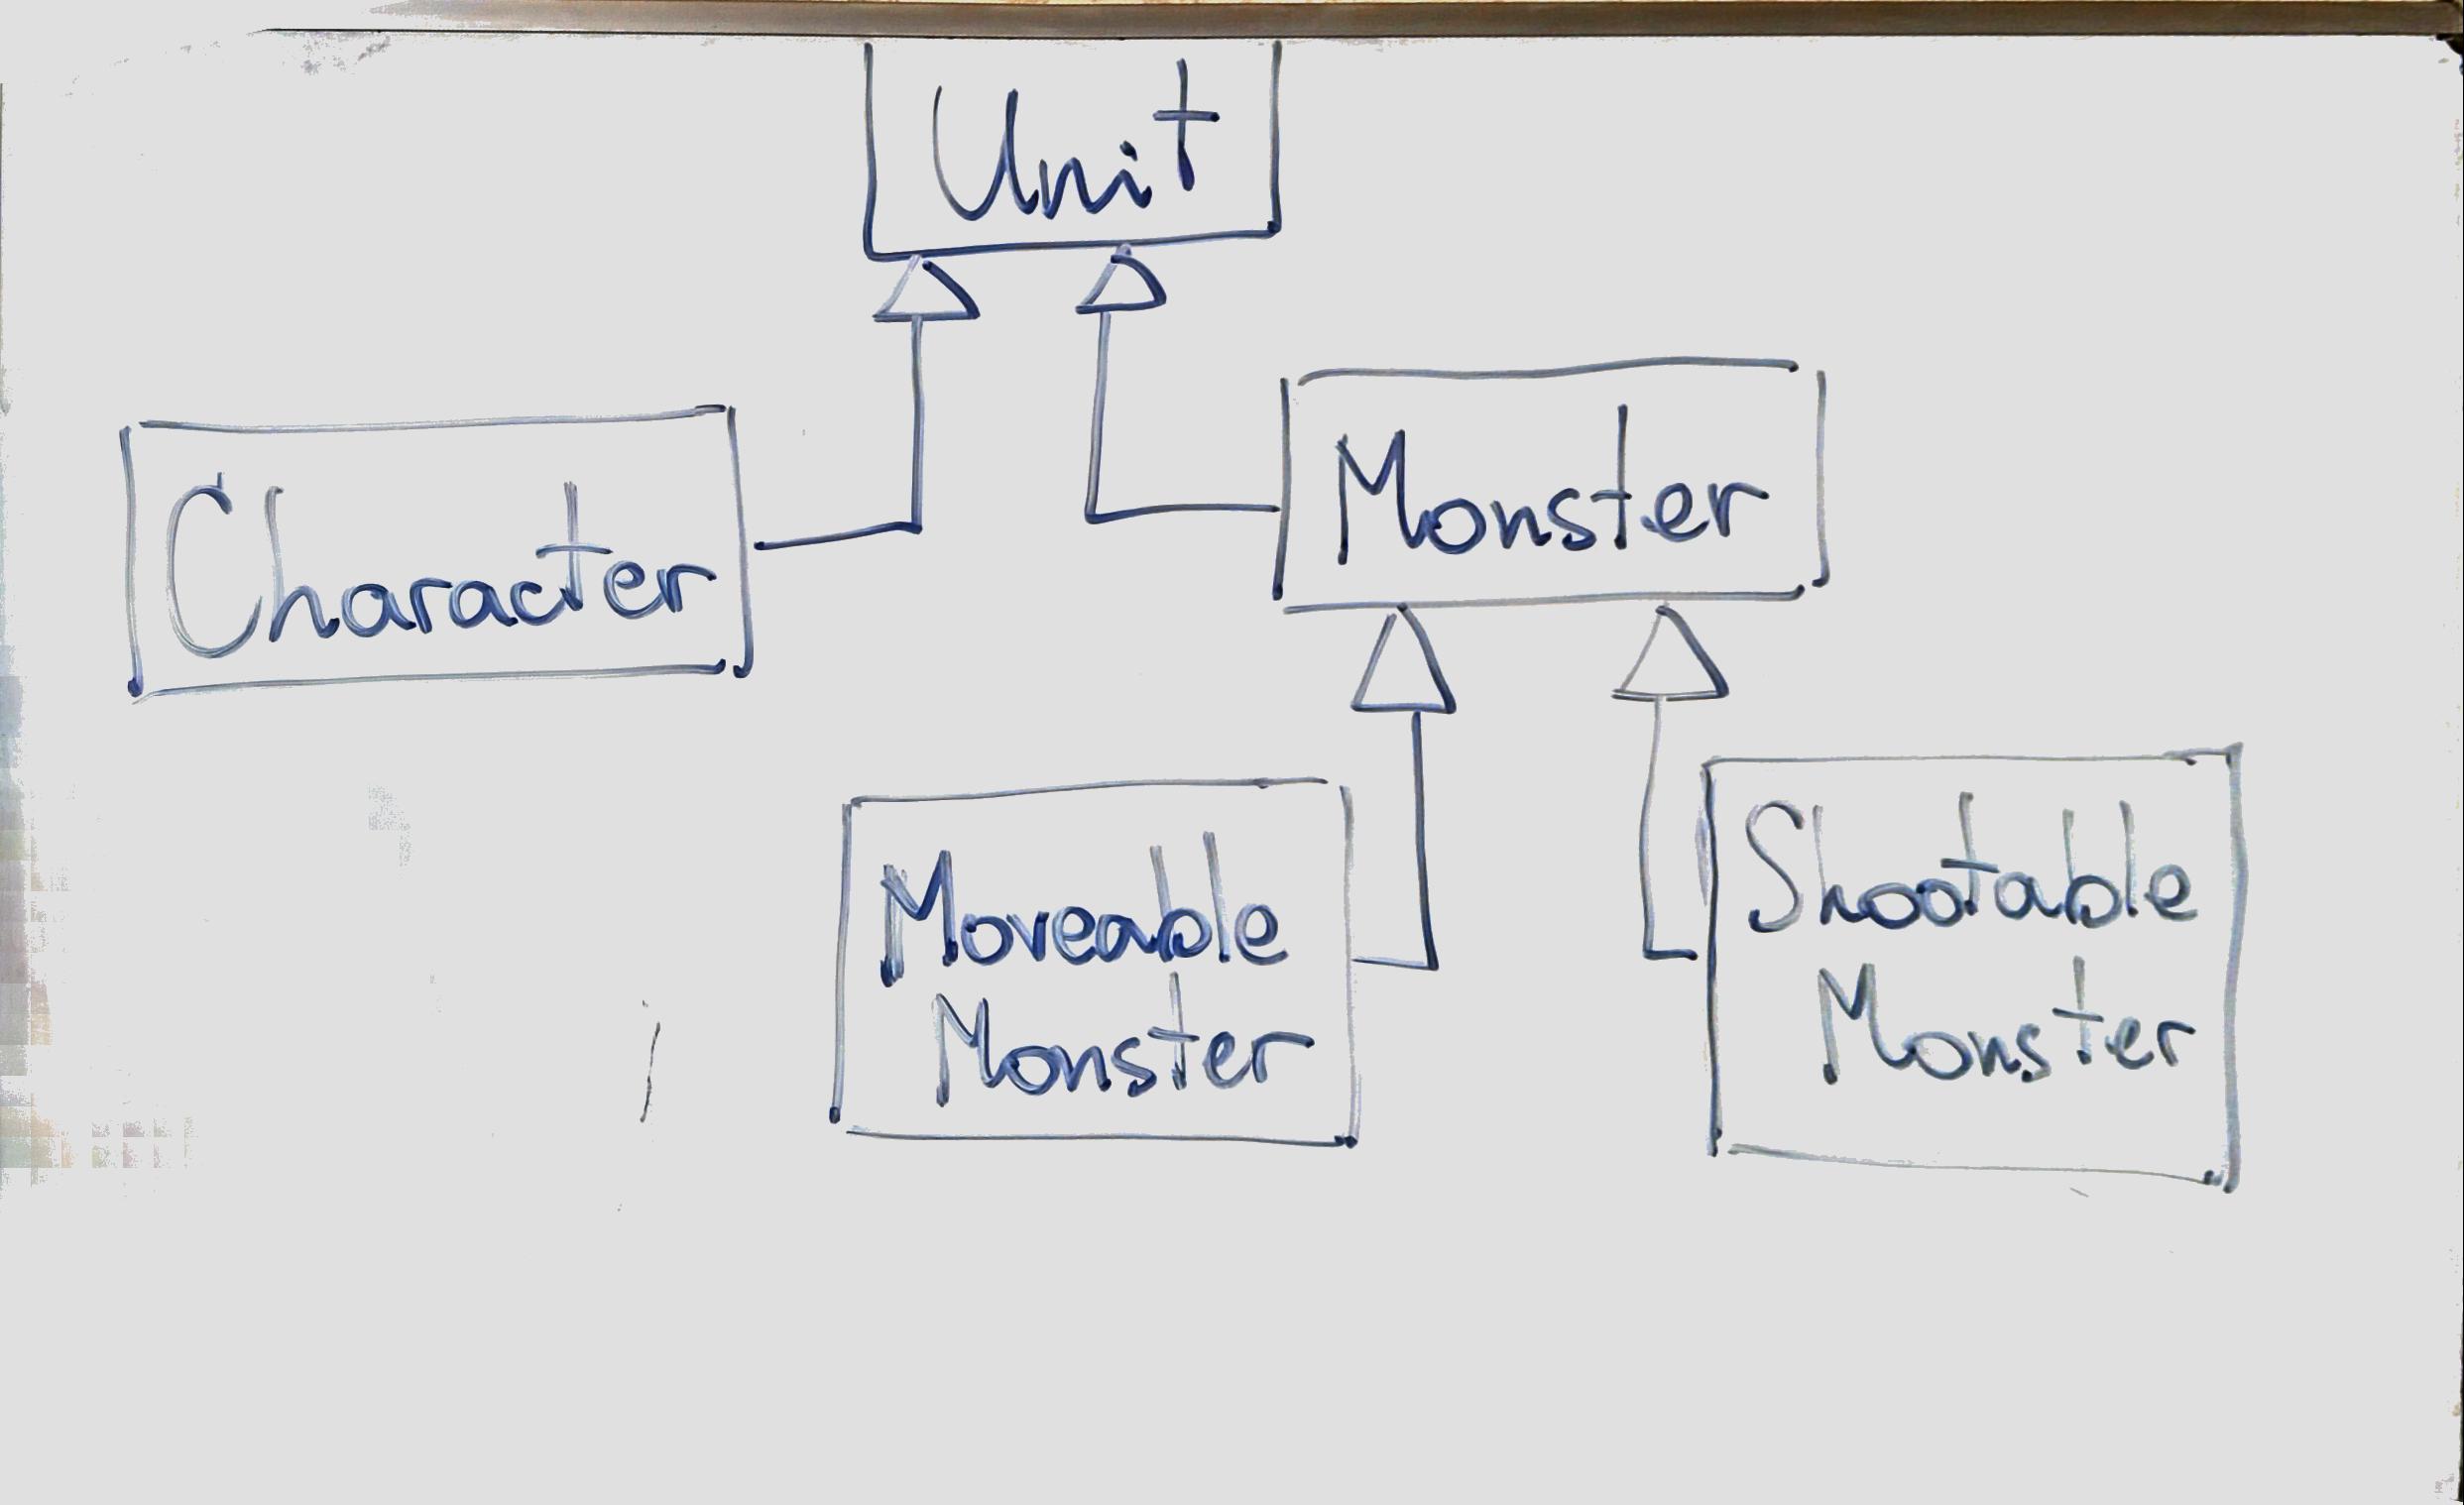 Unit
Character
Monster
Moveable
Monster
Shootable
Monster